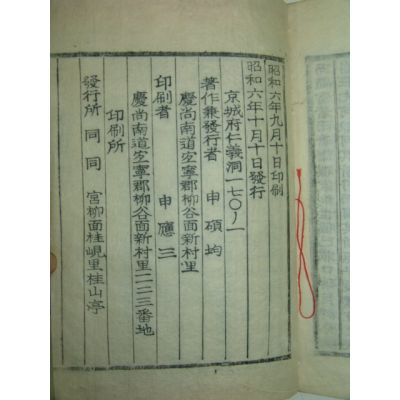 昭和六年九月十日印刷
昭和六年十月十日發行
京城府仁義洞一七〇ノ一
著作兼發行者 申碩均
慶尚南道宜寧郡柳谷面新村里
印刷者 申應三
慶尚南道宜寧郡柳谷面新村里一二三番地
印刷所
發行所 同同 宮柳面桂峴里桂山亭